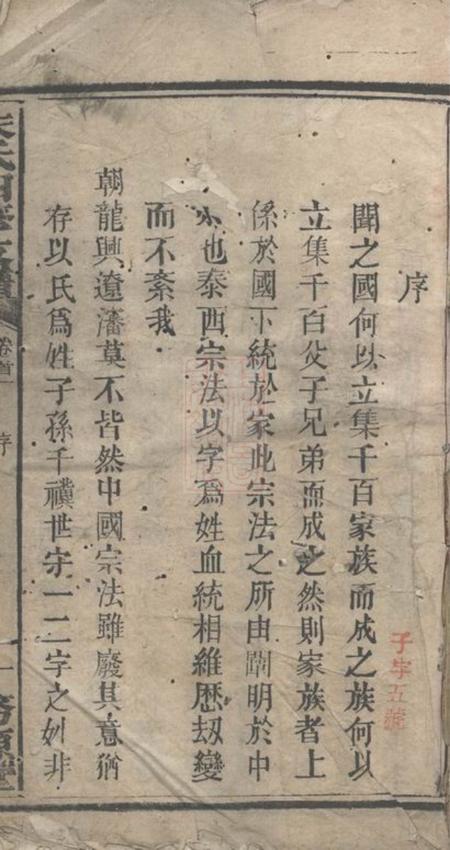 序
聞之國何以立集千百家族而成之族何以
立集千百父子兄弟而成之然則家族者上
係於國下統於家此宗法之所由闡明於中
也泰西宗法以字爲姓血統相維歷刼變
而不紊我
朝龍興遼瀋莫不皆然中國宗法雖廢其意猶
存以氏爲姓子孫千禩世守一二字之姓非
子字五號
卷首
序
一